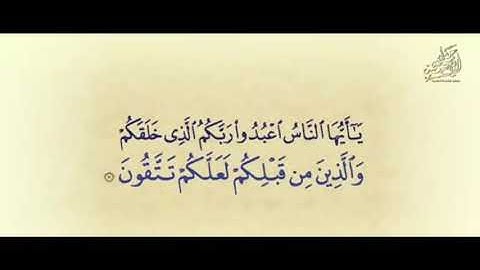 يَـٰٓأَيُّهَا ٱلنَّاسُ ٱعْبُدُوا۟ رَبَّكُمُ ٱلَّذِى خَلَقَكُمْ
وَٱلَّذِينَ مِن قَبْلِكُمْ لَعَلَّكُمْ تَتَّقُونَ